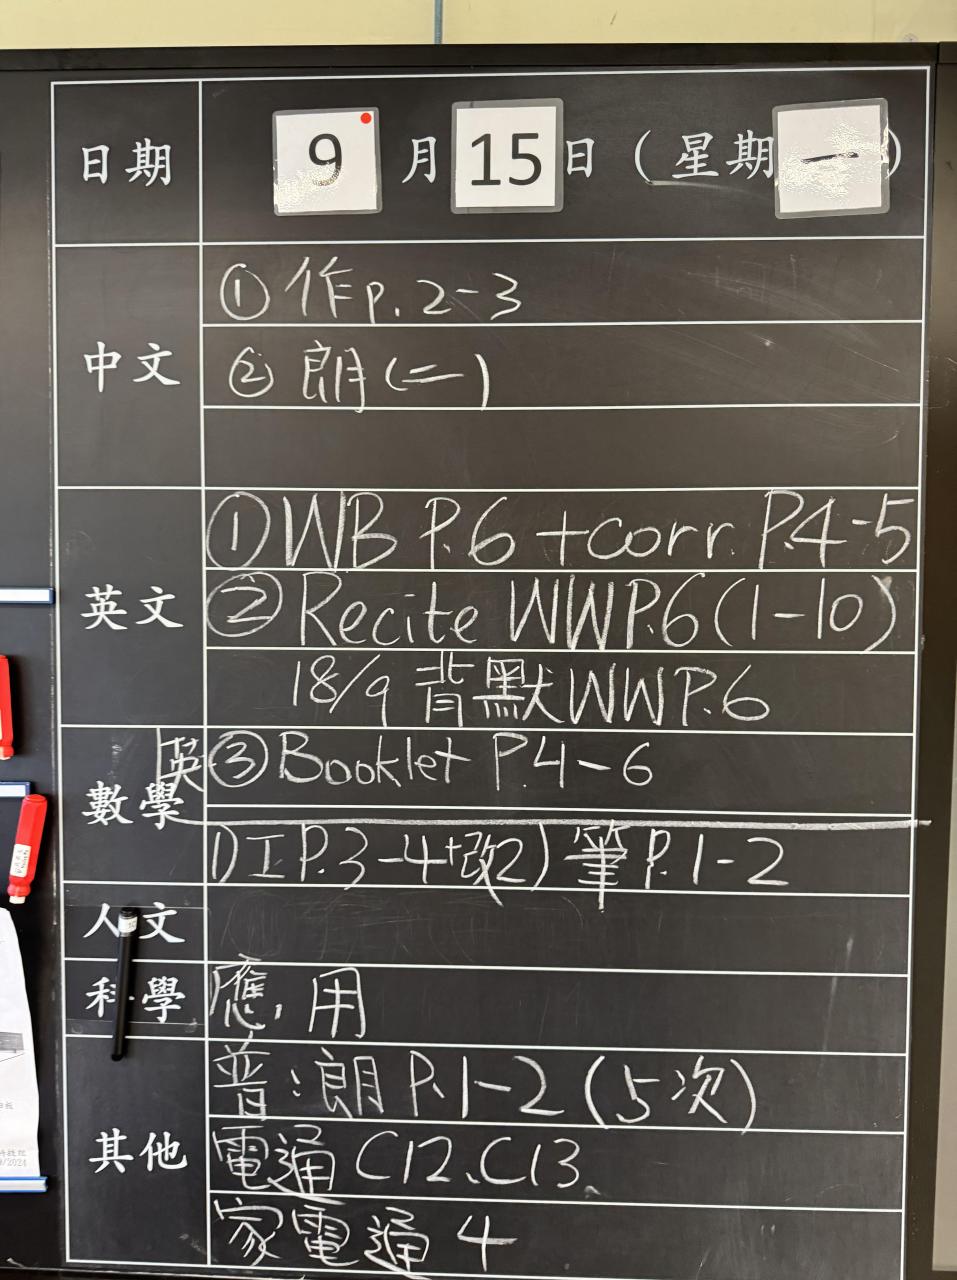 日期 9 月 15 日 ( 星期 一 )
中文
① 作 p. 2-3
② 朗 (二)
英文
① WB P.6 + corr. P.4-5
② Recite WW P.6 (1-10)
18/9 背默 WW P.6
英 ③ Booklet P.4-6
數學
1) 工 P.3-4+改 2) 筆 P.1-2
人文
科學
應.用
其他
普:朗 P.1-2 (5次)
電通 C12、C13、
家電通 4